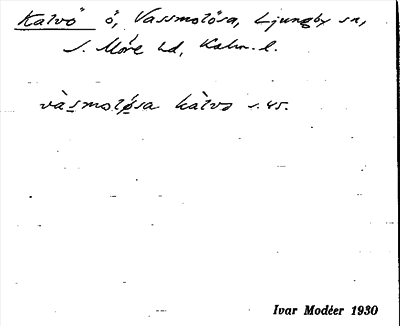 Kalvö ö, Vassmolösa, Ljungby sn,
S. Möre hd, Kalm. l.
vàsmolǿsa kàlvø s. 45.
Ivar Modéer 1930